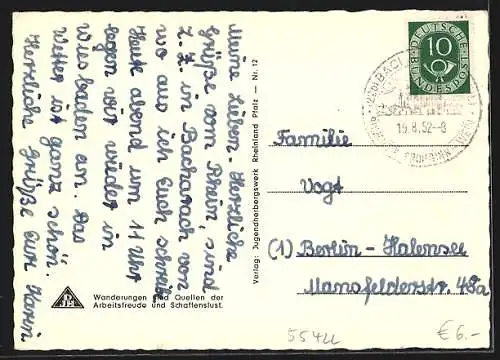 Meine Lieben. Herzliche
Grüße vom Rhein, sind
z.Z. in Bacharach von
wo aus ich Euch schreib.
Heut abend um 11 Uhr
legen wir wieder in
Wiesbaden an. Das
Wetter ist ganz schön.
Herzliche Grüße Eure Karin
DJH
Wanderungen sind Quellen der
Arbeitsfreude und Schaffenslust.
Verlag: Jugendherbergswerk Rheinland Pfalz — Nr. 12
DEUTSCHE
BUNDESPOST
10
15.8.52-8
Familie
Vogt
(1) Berlin-Halensee
Mansfelderstr. 48a
5544
€ 6.-